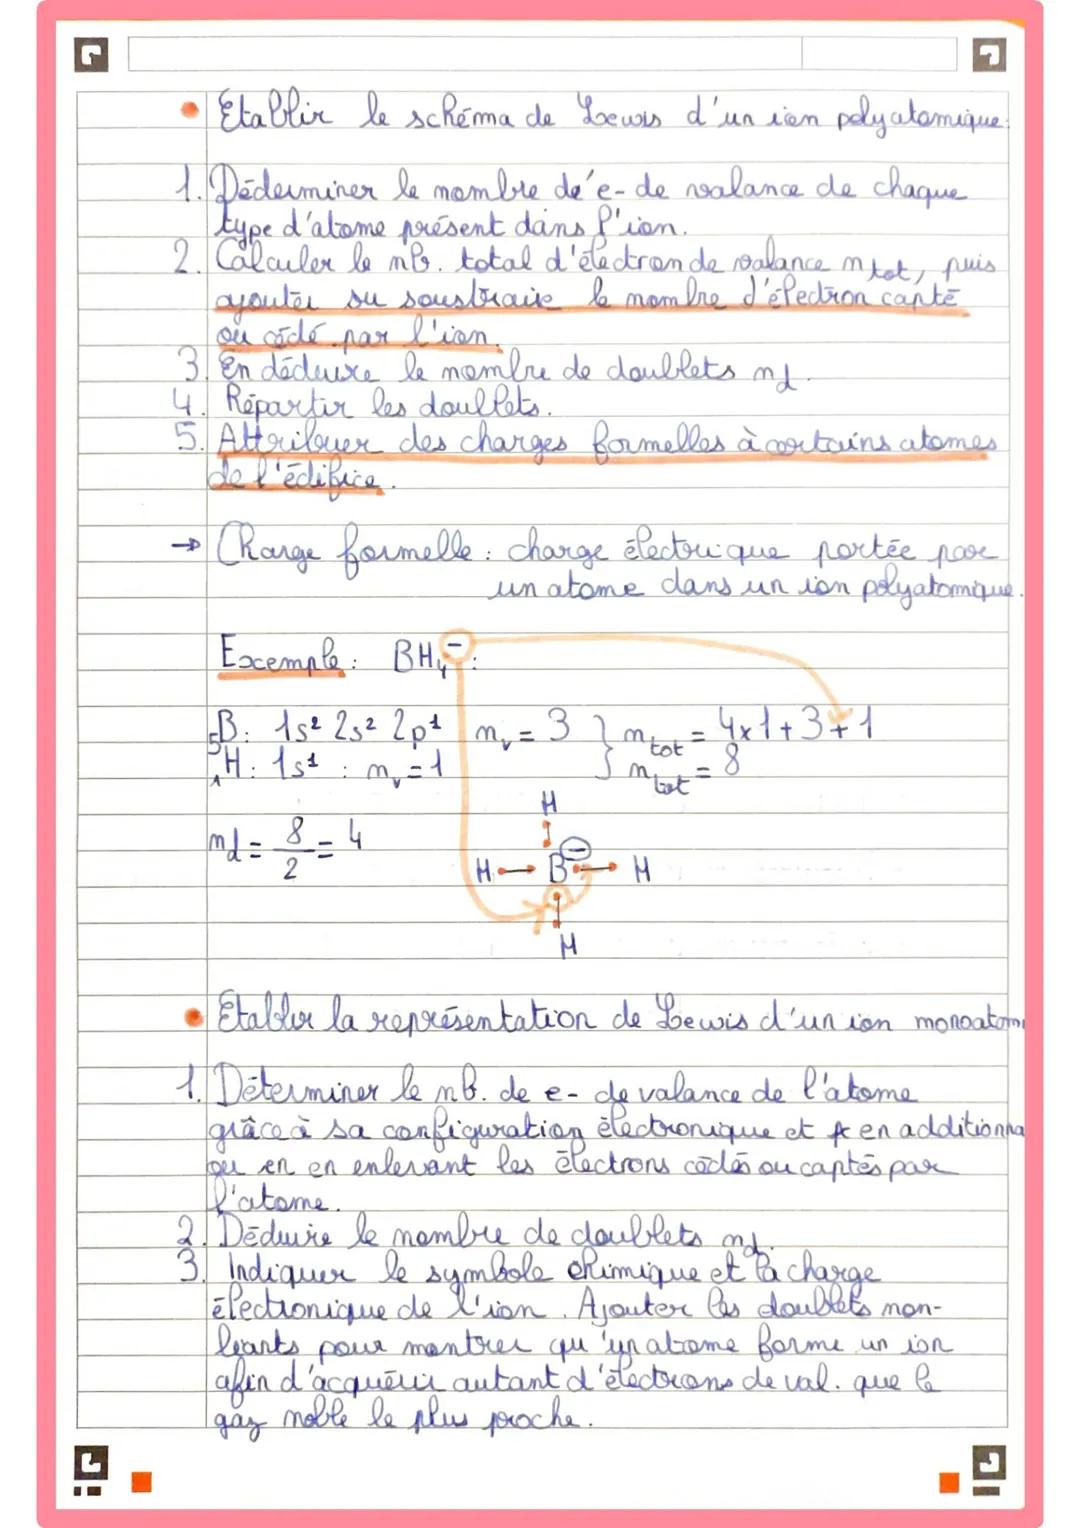 • Etablir le schéma de Lewis d'un ion polyatomique.
1. Déderminer le nombre de'e- de valance de chaque
type d'atome présent dans l'ion.
2. Calculer le nb. total d'électron de valance n tot, puis
ajouter ou soustraire le nombre d'électron capté
ou cédé par l'ion.
3. En déduire le nombre de doublets nd.
4. Répartir les doublets.
5. Attribuer des charges formelles à certains atomes
de l'édifice.
→ Charge formelle : charge électrique portée par
un atome dans un ion polyatomique.
Exemple : BH₄⁻ :
₅B : 1s² 2s² 2p¹ nᵥ = 3 } n tot = 4x1+3+1
₁H : 1s¹ : nᵥ = 1 n tot = 8
H
nd = 8/2 = 4
H B ⊖ H
H
• Etablir la représentation de Lewis d'un ion monoatom
1. Déterminer le nb. de e- de valance de l'atome
grâce à sa configuration électronique et en additionna
ou en en enlevant les électrons cédés ou captés par
l'atome.
2. Déduire le nombre de doublets nd.
3. Indiquer le symbole chimique et la charge
électronique de l'ion. Ajouter les doublets non-
liants pour montrer qu'un atome forme un ion
afin d'acquérir autant d'électrons de val. que le
gaz noble le plus proche.